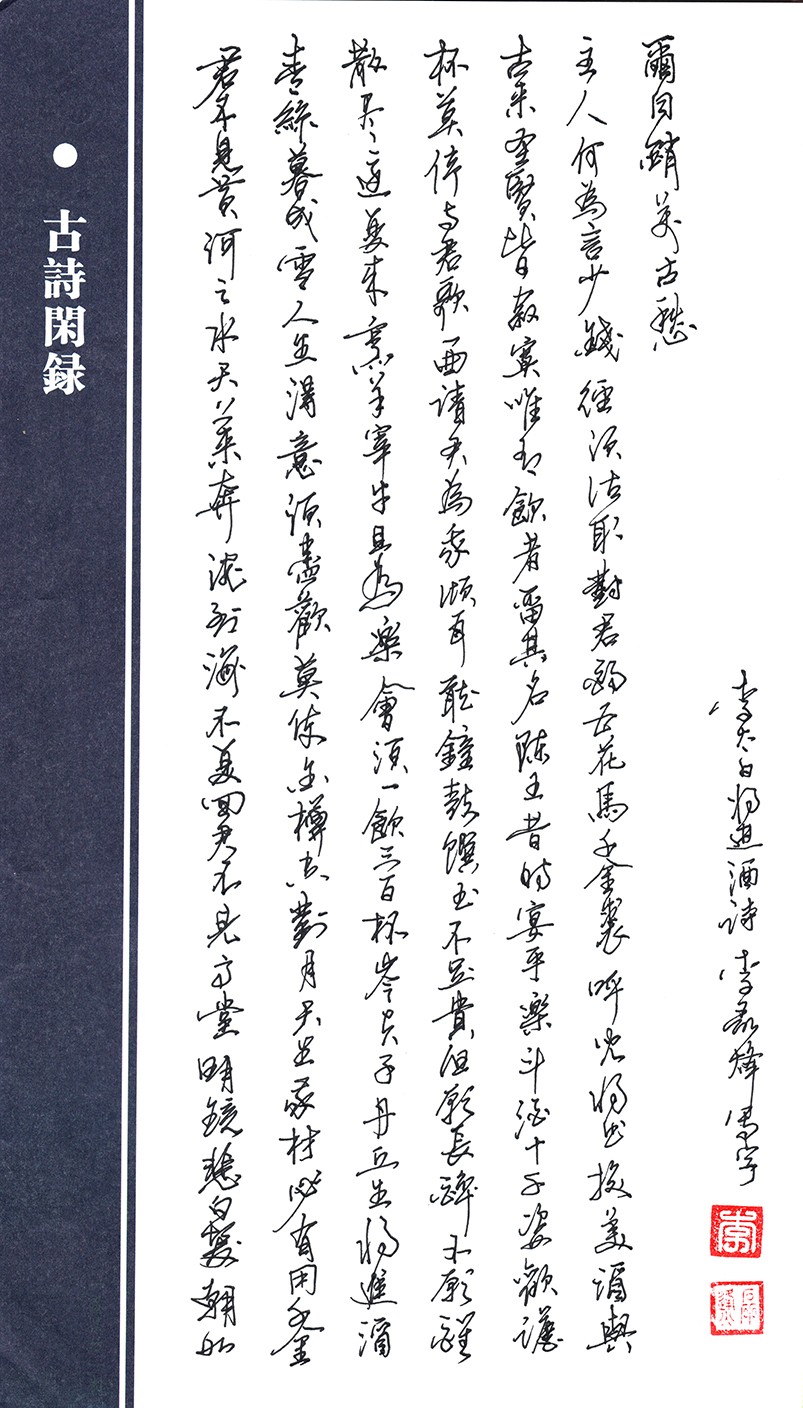 古詩閑録
君不見黃河之水天上來奔流到海不復回君不見高堂明鏡悲白髮朝如
青絲暮成雪人生得意須盡歡莫使金樽空對月天生我材必有用千金
散尽還復來烹羊宰牛且為樂會須一飲三百杯岑夫子丹丘生將進酒
杯莫停與君歌一曲請君為我傾耳聽鐘鼓饌玉不足貴但願長醉不願醒
古來聖賢皆寂寞唯有飲者留其名陳王昔時宴平樂斗酒十千恣歡謔
主人何為言少錢徑須沽取對君酌五花馬千金裘呼兒將出換美酒與
爾同銷萬古愁
李太白將進酒詩 李磊
李